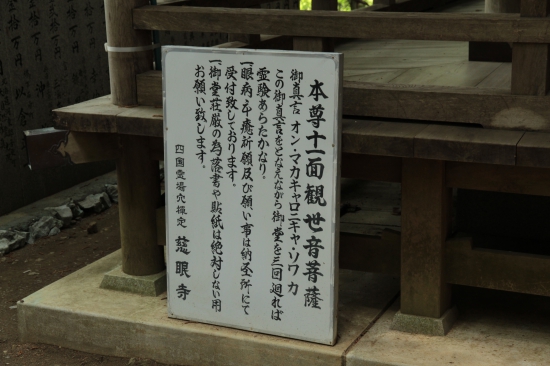 本尊十一面観世音菩薩
御真言 オン・マカキャロニキャ・ソワカ
この御真言をとなえながら御堂を三回廻れば
霊験あらたかなり。
一眼病平癒祈願及び願い事は納経所にて
受付致しております。
一御堂荘厳の為落書や貼紙は絶対しない用
お願い致します。
四国霊場穴禅定 慈眼寺